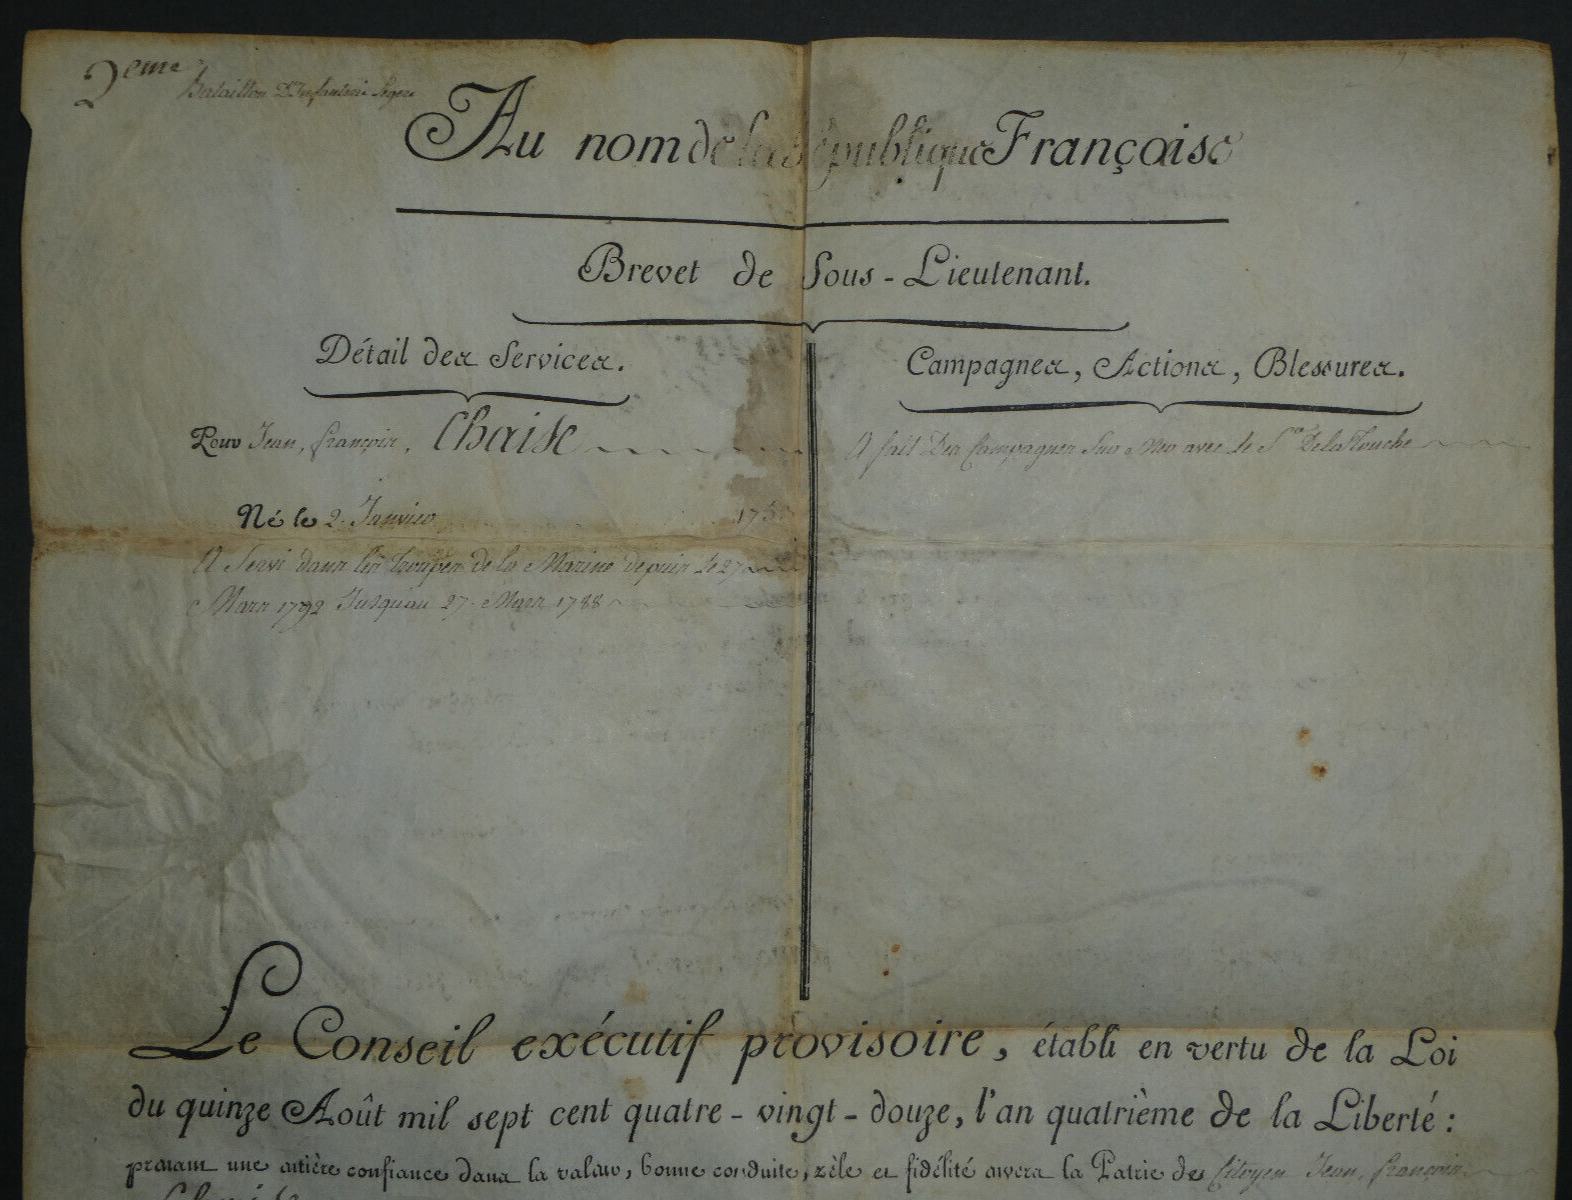 2eme
Bataillon D'Infanterie légere
Au nom de la République Françoise
Brevet de Sous-Lieutenant.
Détail des Services.
Campagnes, Actions, Blessures.
Pour Jean, françois, Chaise
A fait Des Campagnes Sur Mer avec le Sr. DelaTouche
Né le 2. Janvier 175
A Servi dans les troupes de la Marine depuis le 27
Mars 1792 Jusqu'au 27. Mars 1788
Le Conseil exécutif provisoire, établi en vertu de la Loi
du quinze Août mil sept cent quatre-vingt-douze, l'an quatrième de la Liberté :
prenant une entière confiance dans la valeur, bonne conduite, zèle et fidélité envers la Patrie de Citoyen Jean, françois
Chaise